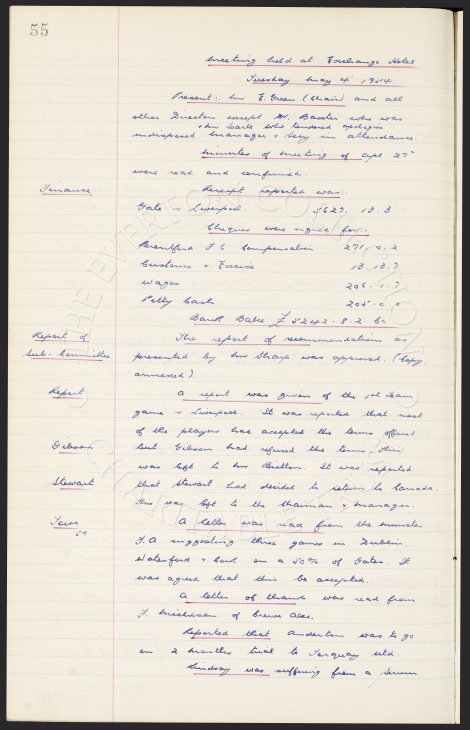 55
Meeting held at Exchange Hotel
Tuesday May 4th 1954
Present:. Mr E. Green (Chair) and all
other Directors except Dr. Baxter who was
& Mr Searle who tendered apologies
indisposed. Manager & Secy in attendance.
Minutes of meeting of Apl 27th
were read and confirmed.
Finance. Receipt reported was:
Gate v Liverpool. 5627. 13. 3
Cheques were signed for:-
Brentford F.C Compensation 271. 0. 2
Customs & Excise 18. 18. 7
Wages 206. 1. 7
Petty Cash 205. 0. 0
Bank Balce £ 5242. 8. 2 Cr.
Report of The report of recommendations as
Sub-Committee presented by Mr Sharp was approved. (Copy
annexed).
Report A report was given of the 1st team
game v Liverpool. It was reported that most
of the players had accepted the terms offered
Gibson but Gibson had refused the terms, this
was left to Mr Britton. It was reported
Stewart that Stewart had decided to return to Canada.
this was left to the Chairman & Manager.
Tour A letter was read from the Munster
54
F.A suggesting three games in Dublin
Waterford & Cork on a 50% of Gates. It
was agreed that this be accepted.
A letter of thanks was read from
of Crewe Alex.
Reported that Anderton was to go
on 2 months trial to Torquay Utd.
Lindsay was suffering from a